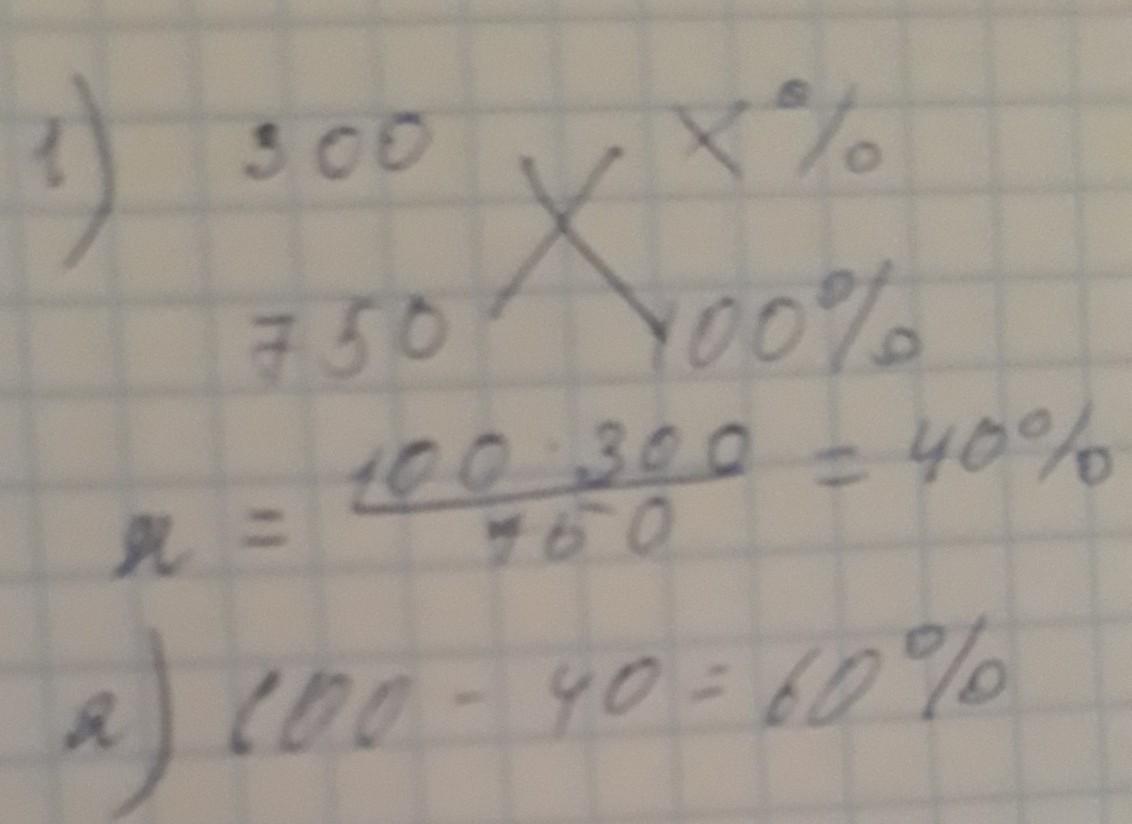 1) 300 x%
750 100%
x = 100 · 300 / 750 = 40%
2) 100 - 40 = 60%